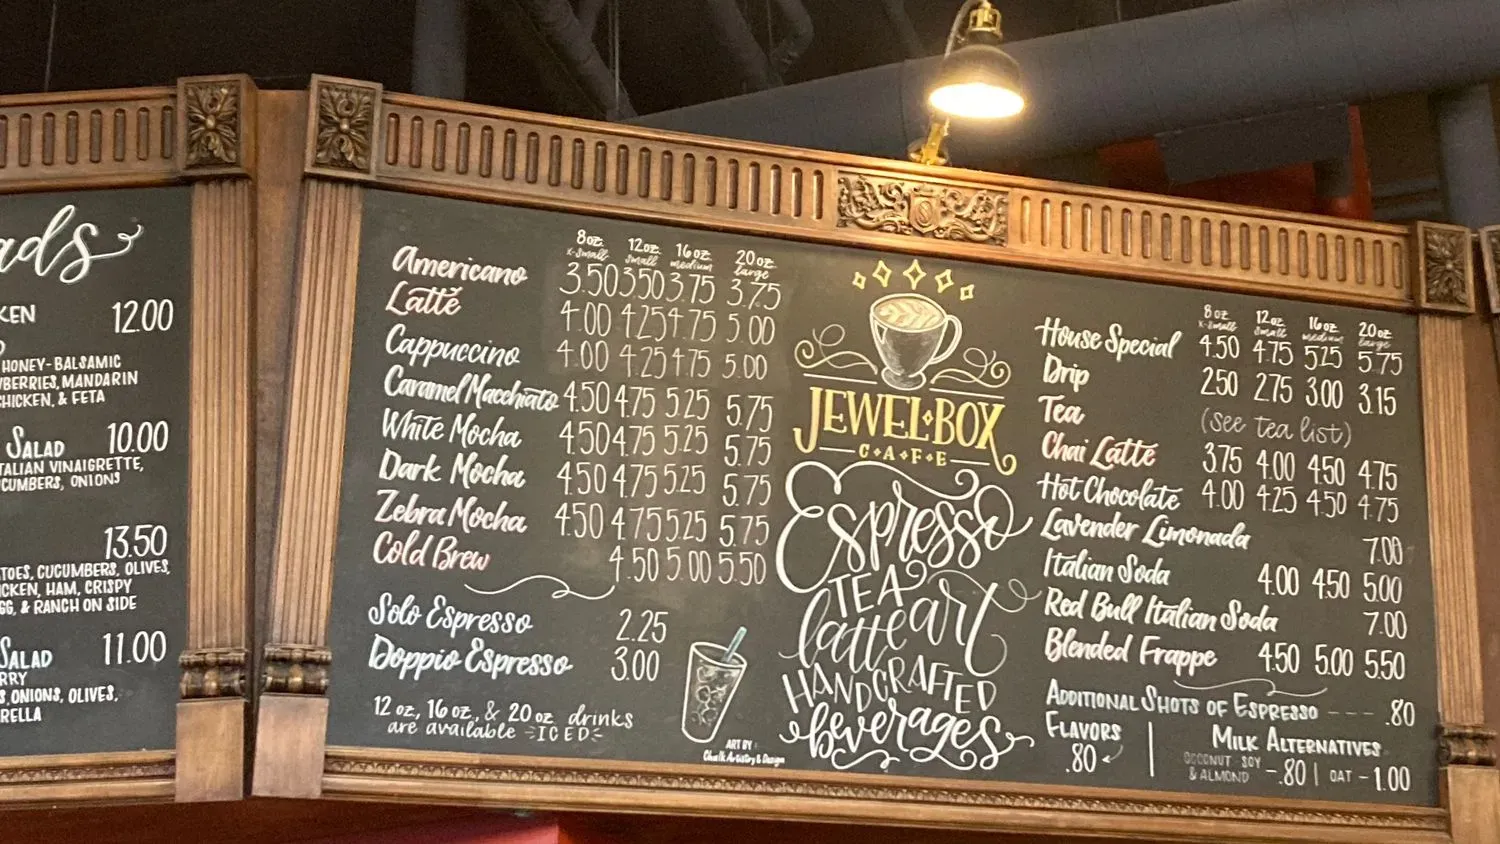 ads
KEN 12.00
HONEY-BALSAMIC
BERRIES, MANDARIN
HICKEN, & FETA
SALAD 10.00
TALIAN VINAIGRETTE,
CUMBERS, ONIONS
13.50
TOES, CUCUMBERS, OLIVES,
CKEN, HAM, CRISPY
GG, & RANCH ON SIDE
SALAD 11.00
RRY
S, ONIONS, OLIVES,
RELLA
8 oz. 12 oz. 16 oz. 20 oz.
x-small small medium large
Americano 3.50 3.50 3.75 3.75
Latte 4.00 4.25 4.75 5.00
Cappuccino 4.00 4.25 4.75 5.00
Caramel Macchiato 4.50 4.75 5.25 5.75
White Mocha 4.50 4.75 5.25 5.75
Dark Mocha 4.50 4.75 5.25 5.75
Zebra Mocha 4.50 4.75 5.25 5.75
Cold Brew 4.50 5.00 5.50
Solo Espresso 2.25
Doppio Espresso 3.00
12 oz, 16 oz, & 20 oz drinks
are available ICED
ART BY
Chalk Artistry & Design
JEWEL BOX
CAFE
Espresso
TEA
latte art
HANDCRAFTED
beverages
8 oz 12 oz 16 oz 20 oz
x-small small medium large
House Special 4.50 4.75 5.25 5.75
Drip 2.50 2.75 3.00 3.15
Tea (see tea list)
Chai Latte 3.75 4.00 4.50 4.75
Hot Chocolate 4.00 4.25 4.50 4.75
Lavender Limonada 7.00
Italian Soda 4.00 4.50 5.00
Red Bull Italian Soda 7.00
Blended Frappe 4.50 5.00 5.50
ADDITIONAL SHOTS OF ESPRESSO --- .80
FLAVORS
.80
MILK ALTERNATIVES
COCONUT SOY
& ALMOND - .80 | OAT - 1.00